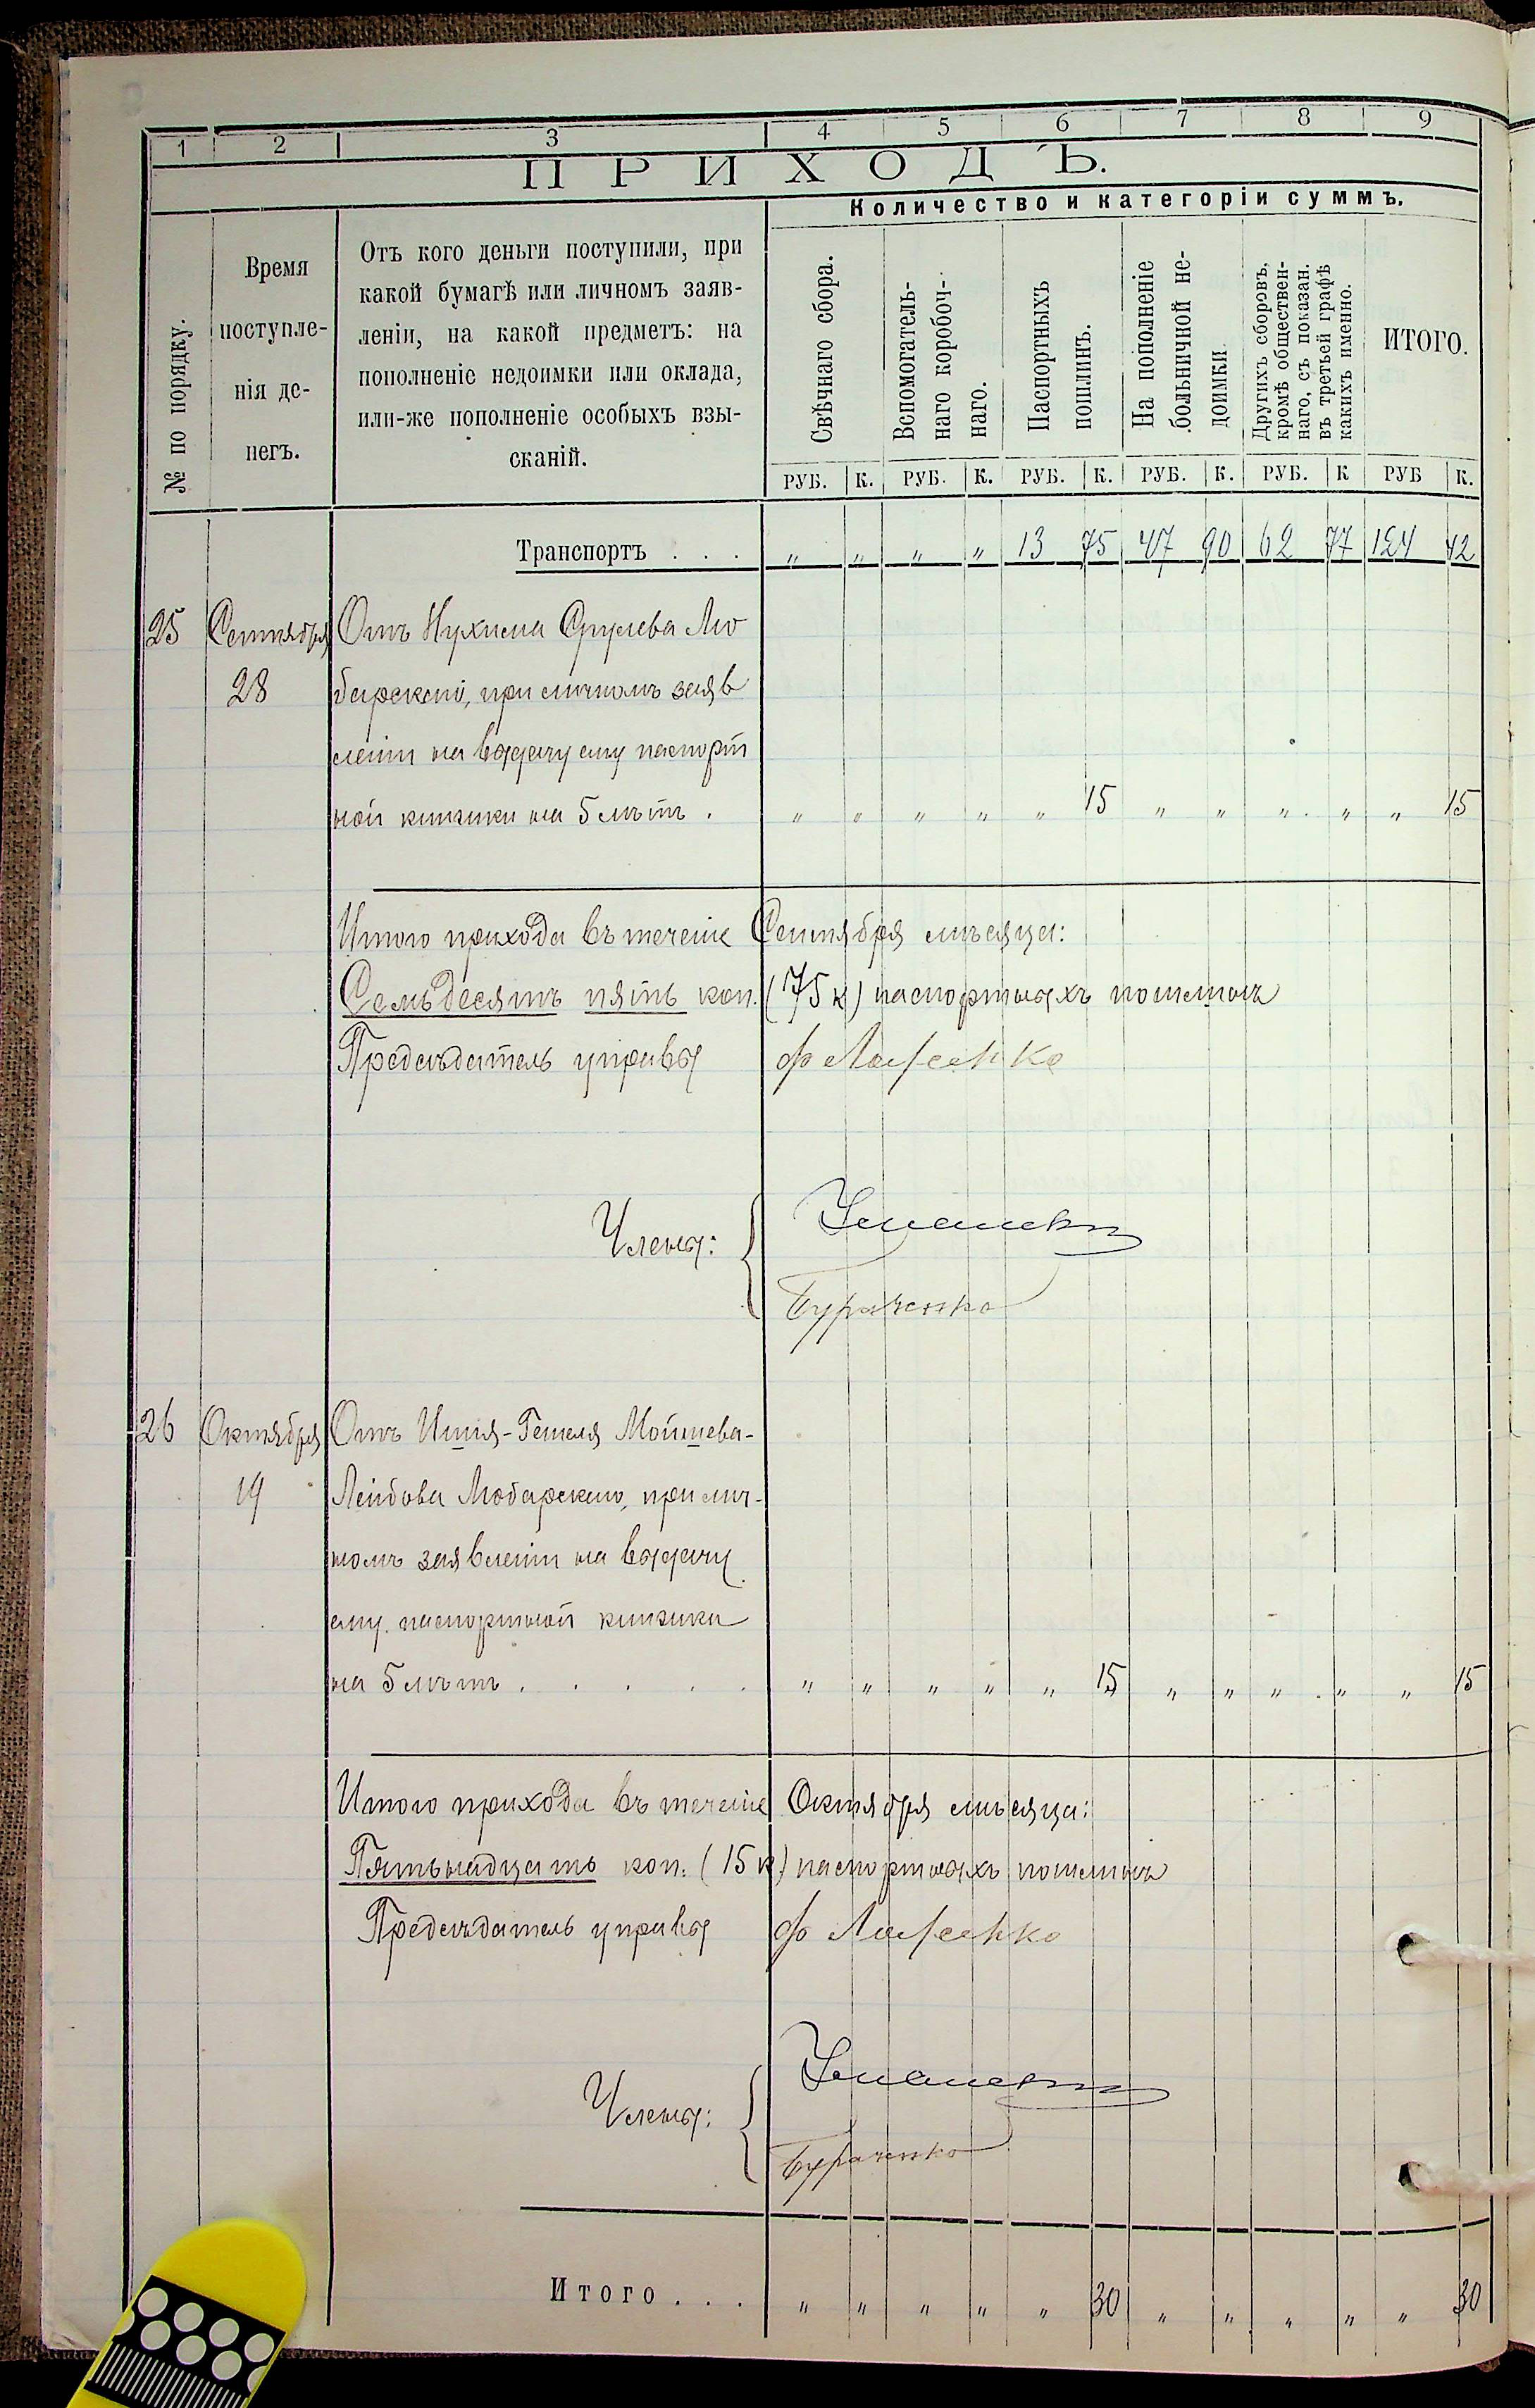 1 2 3 4 5 6 7 8 9
ПРИХОДЪ.
Количество и категоріи суммъ.
№ по порядку.
Время
поступле-
нія де-
негъ.
Отъ кого деньги поступили, при
какой бумагѣ или личномъ заяв-
леніи, на какой предметъ: на
пополненіе недоимки или оклада,
или-же пополненіе особыхъ взы-
сканій.
Свѣчнаго сбора.
Вспомогатель-
наго коробоч-
наго.
Паспортныхъ
пошлинъ.
На пополненіе
больничной не-
доимки
Другихъ сборовъ,
кромѣ обществен-
наго, съ показан.
въ третьей графѣ
какихъ именно.
ИТОГО.
РУБ. К. РУБ. К. РУБ. К. РУБ. К. РУБ. К РУБ К.
Транспортъ . . . „ „ „ „ 13 75 47 90 62 77 124 42
25 Сентября Отъ Нухима Срулева Лю
28 барскаго, при личномъ заяв
леніи на выдачу ему паспорт
ной книжки на 5 лѣтъ . „ „ „ „ „ 15 „ „ „ „ „ 15
Итого прихода въ теченіе Сентября мѣсяца:
Семьдесятъ пять коп. (75 к) паспортныхъ пошлинъ
Предсѣдатель управы
Члены:
Бураченко
26 Октября Отъ Ишія-Гешеля Мойшева-
19 Лейбова Любарскаго, при лич-
номъ заявленіи на выдачу
ему паспортной книжки
на 5 лѣтъ . . . . . „ „ „ „ „ 15 „ „ „ „ „ 15
Итого прихода въ теченіе Октября мѣсяца:
Пятьнадцать коп. (15 к) паспортныхъ пошлинъ
Предсѣдатель управы
Члены:
Бураченко
Итого . . . „ „ „ „ „ 30 „ „ „ „ „ 30